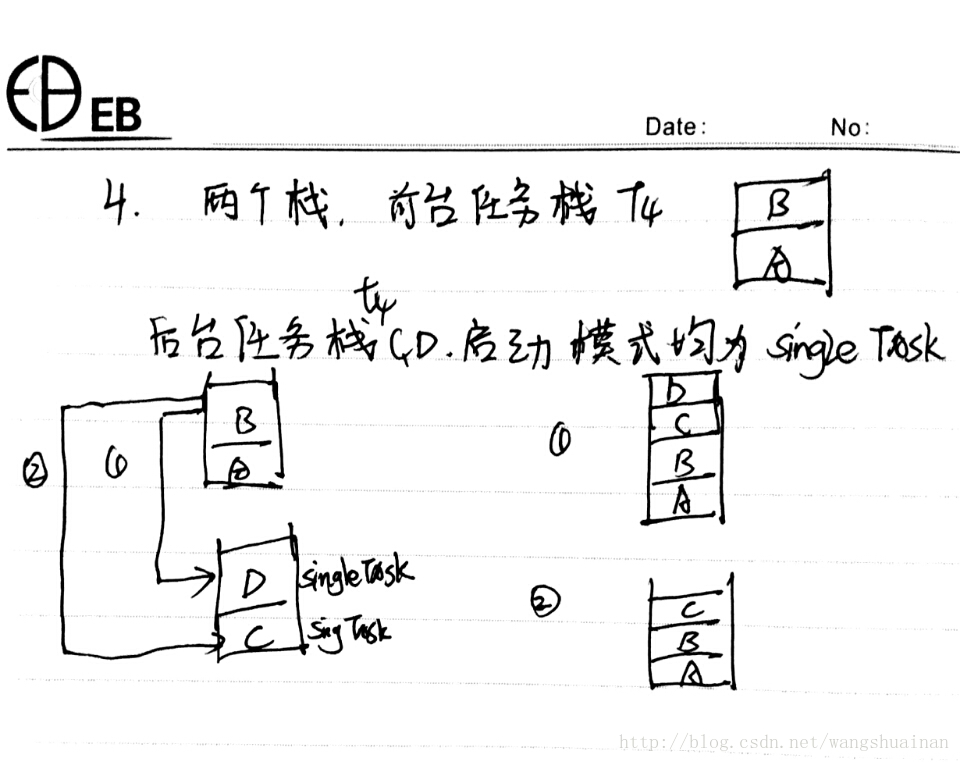 EB EB
Date: No:
4. 两个栈, 前台任务栈 T4
B
A
t4
后台任务栈 C,D. 启动模式均为 single Task
B
A
② ①
D singleTask
C singTask
①
D
C
B
A
②
C
B
A
http://blog.csdn.net/wangshuainan